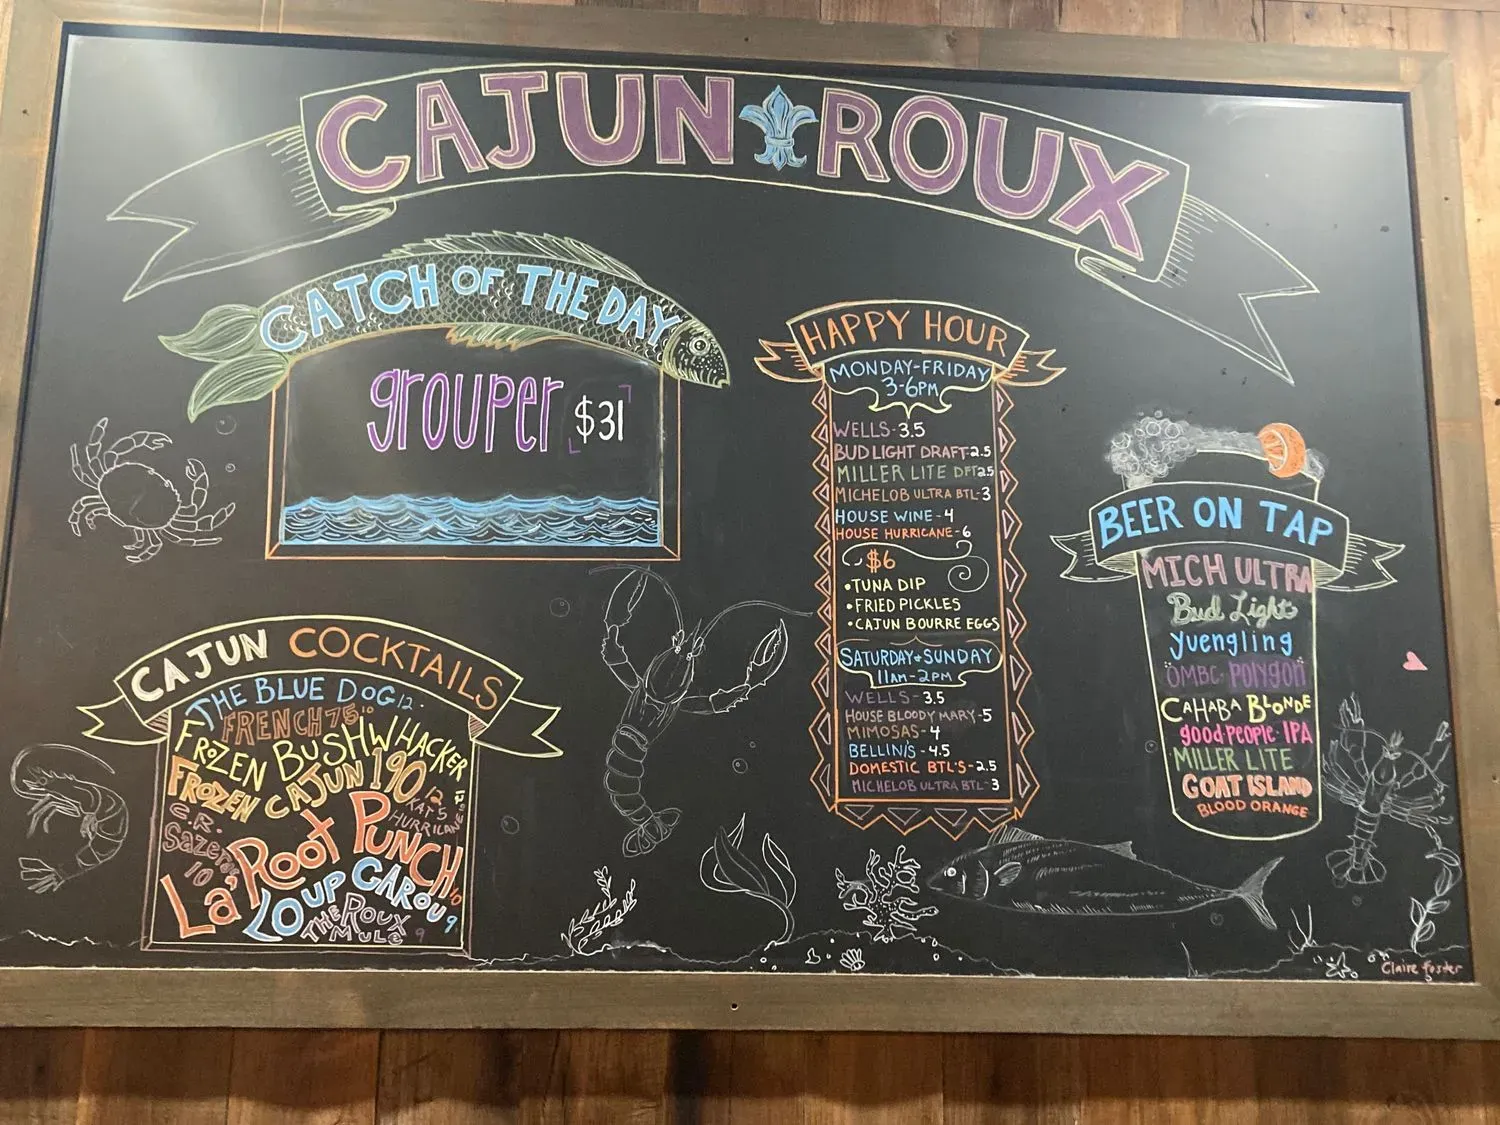 CAJUN ROUX
CATCH OF THE DAY
grouper $31
HAPPY HOUR
MONDAY-FRIDAY
3-6PM
WELLS-3.5
BUD LIGHT DRAFT-2.5
MILLER LITE DFT 2.5
MICHELOB ULTRA BTL-3
HOUSE WINE-4
HOUSE HURRICANE-6
$6
•TUNA DIP
•FRIED PICKLES
•CAJUN BOURRE EGGS
SATURDAY+SUNDAY
11AM-2PM
WELLS-3.5
HOUSE BLOODY MARY-5
MIMOSAS-4
BELLINIS-4.5
DOMESTIC BTL'S-2.5
MICHELOB ULTRA BTL-3
BEER ON TAP
MICH ULTRA
Bud Light
Yuengling
OMBC-POLYGON
CAHABA BLONDE
good-people-IPA
MILLER LITE
GOAT ISLAND
BLOOD ORANGE
CAJUN COCKTAILS
THE BLUE DOG 12.
FRENCH 75 10
FROZEN BUSHWHACKER
FROZEN CAJUN 190 12
KAT'S
HURRICANE
G.R.
Sazerac
10
La'Root PUNCH 10
LOUP GAROU 9
THE ROUX
MULE 9
Claire Foster